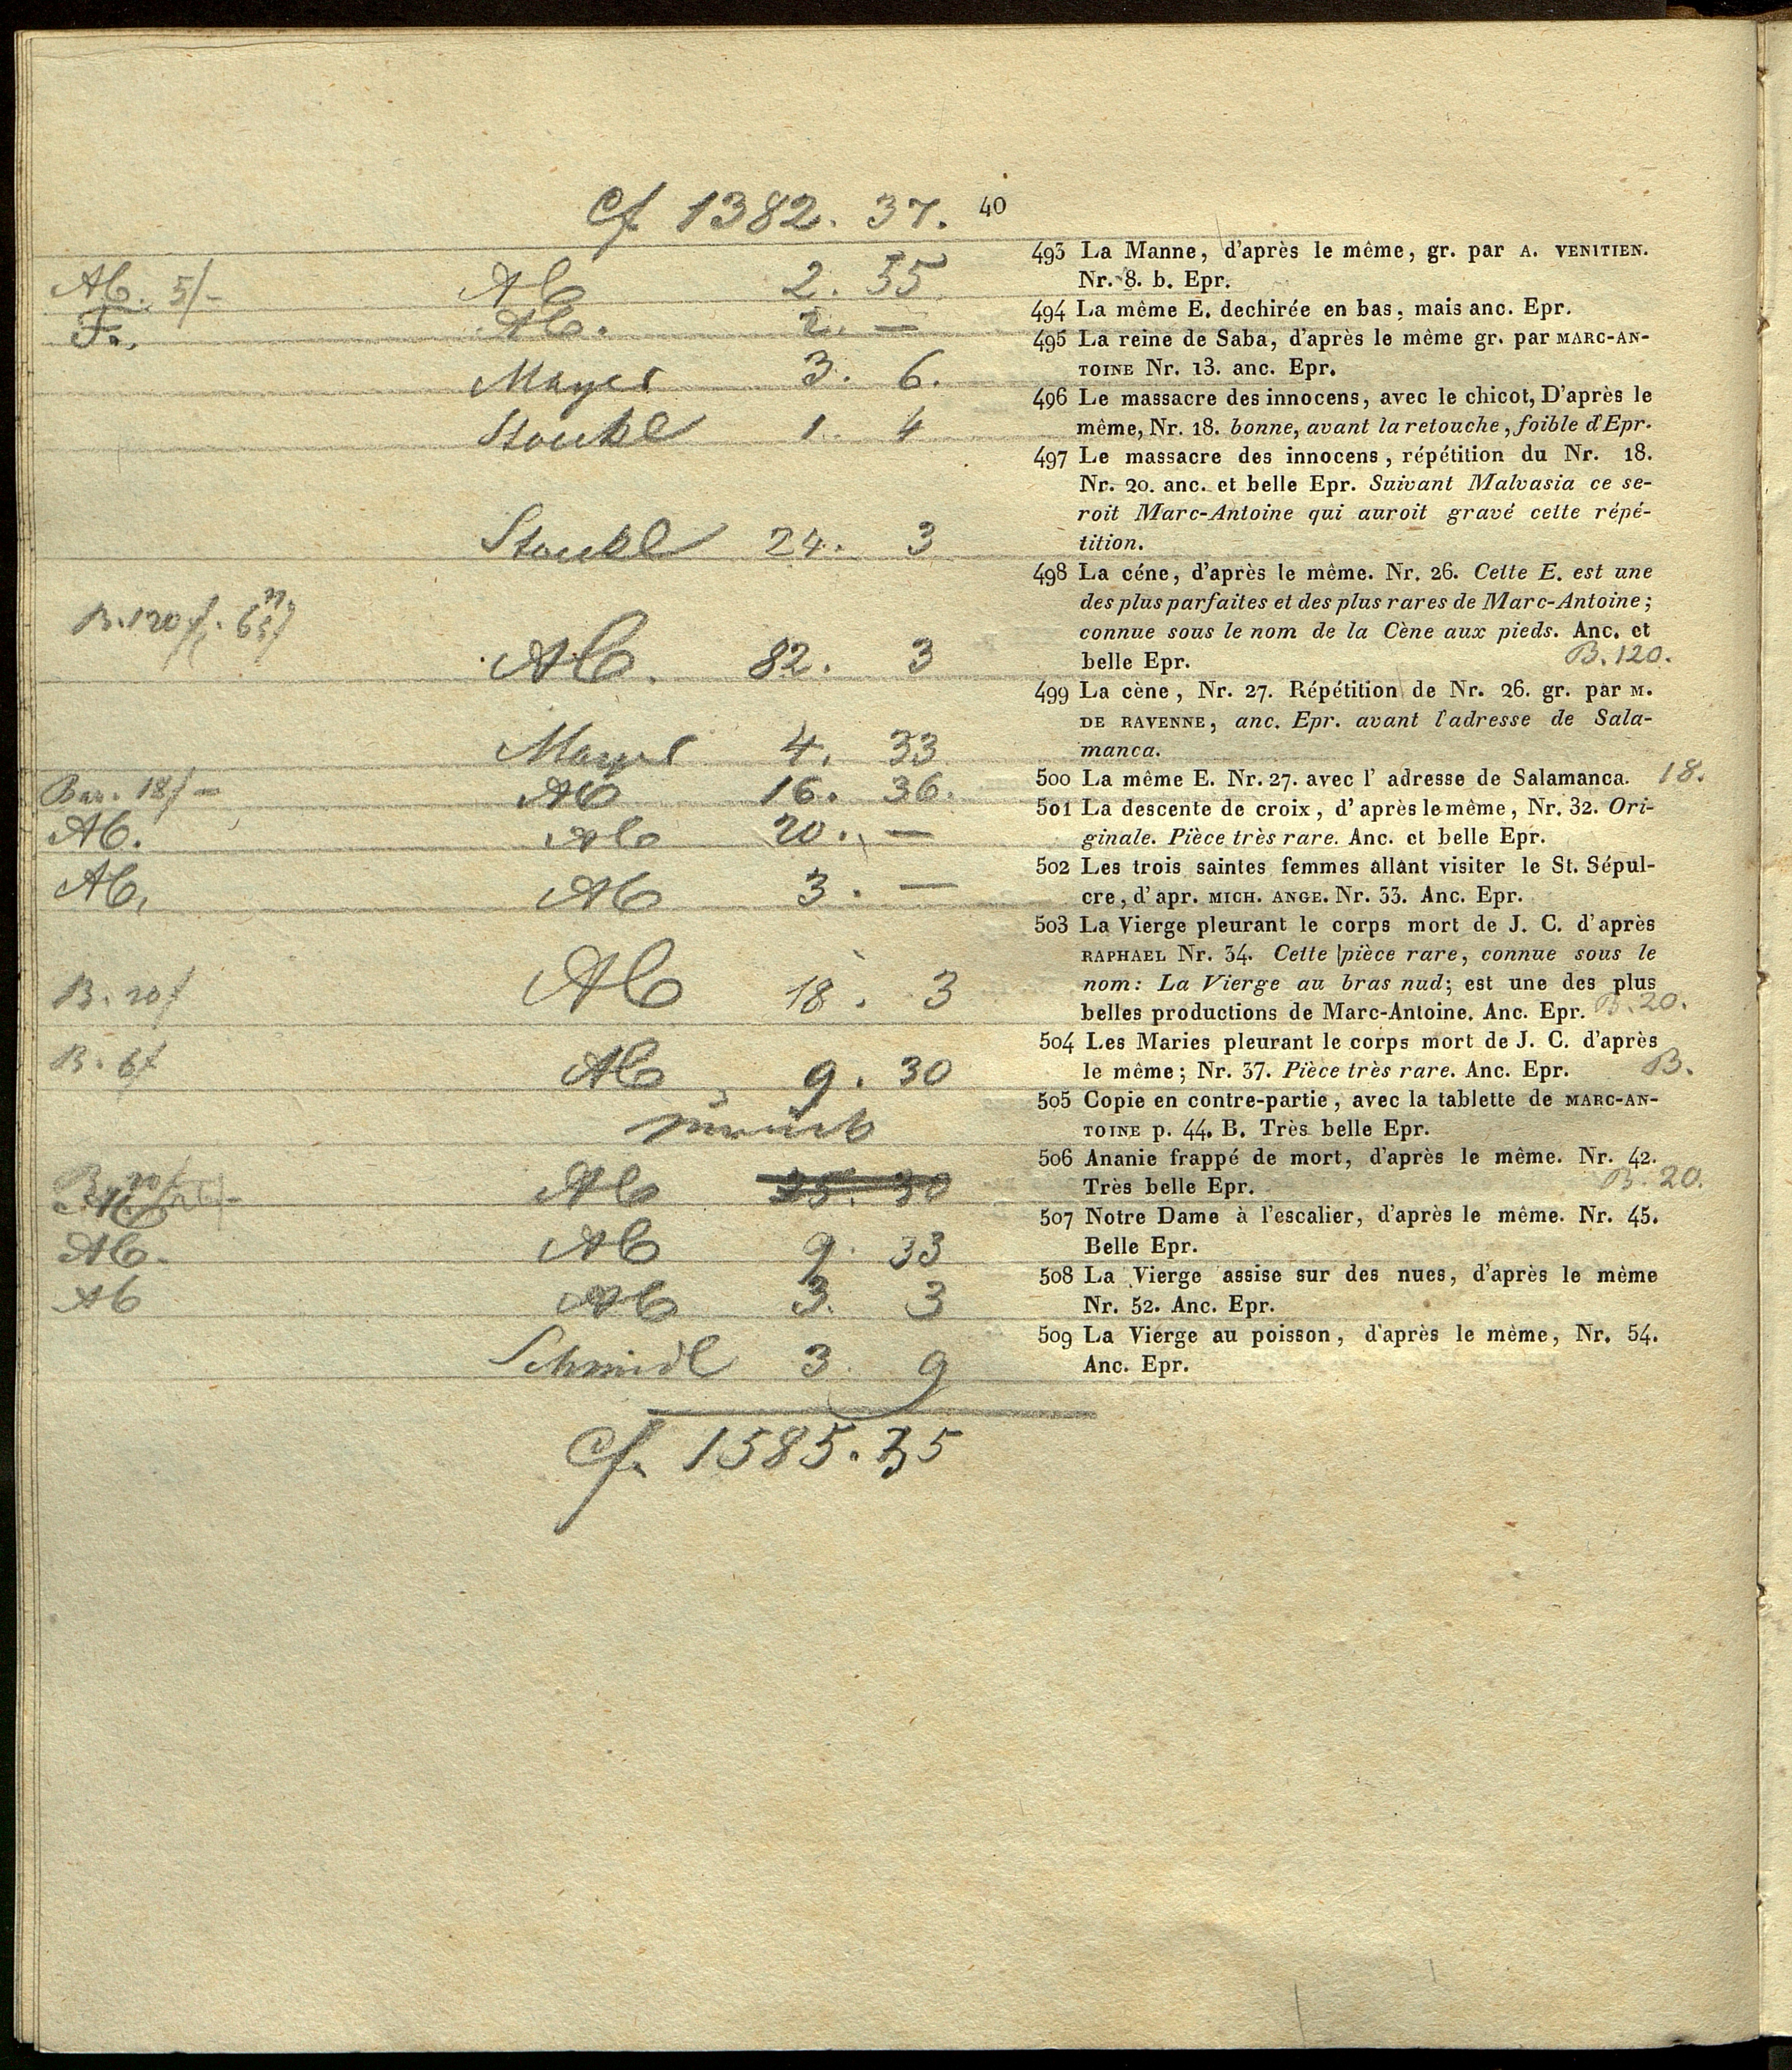 Cf 1382. 37. 40
Ab. 5/-
Ab 2. 55
Fr.
Ab. 2. —
Mayer 3. 6.
Stoukl 1. 4
Stoukl 24. 3
B. 120 f.
Ab. 82. 3
Mayer 4. 33
Bar. 18f —
Ab 16. 36.
Ab.
Ab 20. —
Ab.
Ab 3. —
B. 20f
Ab 18. 3
B. 6f
Ab 9. 30
zurück
Ab 25. 30
Ab.
Ab 9. 33
Ab
Ab 3. 3
Schmidl 3. 9
Cf. 1585. 35
493 La Manne, d'après le même, gr. par A. VENITIEN.
Nr. 8. b. Epr.
494 La même E. dechirée en bas, mais anc. Epr.
495 La reine de Saba, d'après le même gr. par MARC-AN-
TOINE Nr. 13. anc. Epr.
496 Le massacre des innocens, avec le chicot, D'après le
même, Nr. 18. bonne, avant la retouche, foible d'Epr.
497 Le massacre des innocens, répétition du Nr. 18.
Nr. 20. anc. et belle Epr. Suivant Malvasia ce se-
roit Marc-Antoine qui auroit gravé cette répé-
tition.
498 La céne, d'après le même. Nr. 26. Cette E. est une
des plus parfaites et des plus rares de Marc-Antoine;
connue sous le nom de la Cène aux pieds. Anc. et
belle Epr. B. 120.
499 La cène, Nr. 27. Répétition de Nr. 26. gr. par M.
DE RAVENNE, anc. Epr. avant l'adresse de Sala-
manca.
500 La même E. Nr. 27. avec l' adresse de Salamanca. 18.
501 La descente de croix, d' après le même, Nr. 32. Ori-
ginale. Pièce très rare. Anc. et belle Epr.
502 Les trois saintes femmes allant visiter le St. Sépul-
cre, d' apr. MICH. ANGE. Nr. 33. Anc. Epr.
503 La Vierge pleurant le corps mort de J. C. d'après
RAPHAEL Nr. 34. Cette pièce rare, connue sous le
nom: La Vierge au bras nud; est une des plus
belles productions de Marc-Antoine. Anc. Epr. B. 20.
504 Les Maries pleurant le corps mort de J. C. d'après
le même; Nr. 37. Pièce très rare. Anc. Epr. B.
505 Copie en contre-partie, avec la tablette de MARC-AN-
TOINE p. 44. B. Très belle Epr.
506 Ananie frappé de mort, d'après le même. Nr. 42.
Très belle Epr. B. 20.
507 Notre Dame à l'escalier, d'après le même. Nr. 45.
Belle Epr.
508 La Vierge assise sur des nues, d'après le même
Nr. 52. Anc. Epr.
509 La Vierge au poisson, d'après le même, Nr. 54.
Anc. Epr.